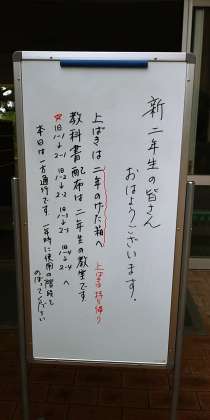 新二年生の皆さん
おはようございます。
上ばきは二年のげた箱へ
上ばきは持ち帰り
教科書配布は二年生の教室です
☆旧1-1→2-1 旧1-2→2-2 旧1-3→2-3 旧1-4→2-4 へ
本日は一方通行です。一年時に使用の階段を
のぼってください